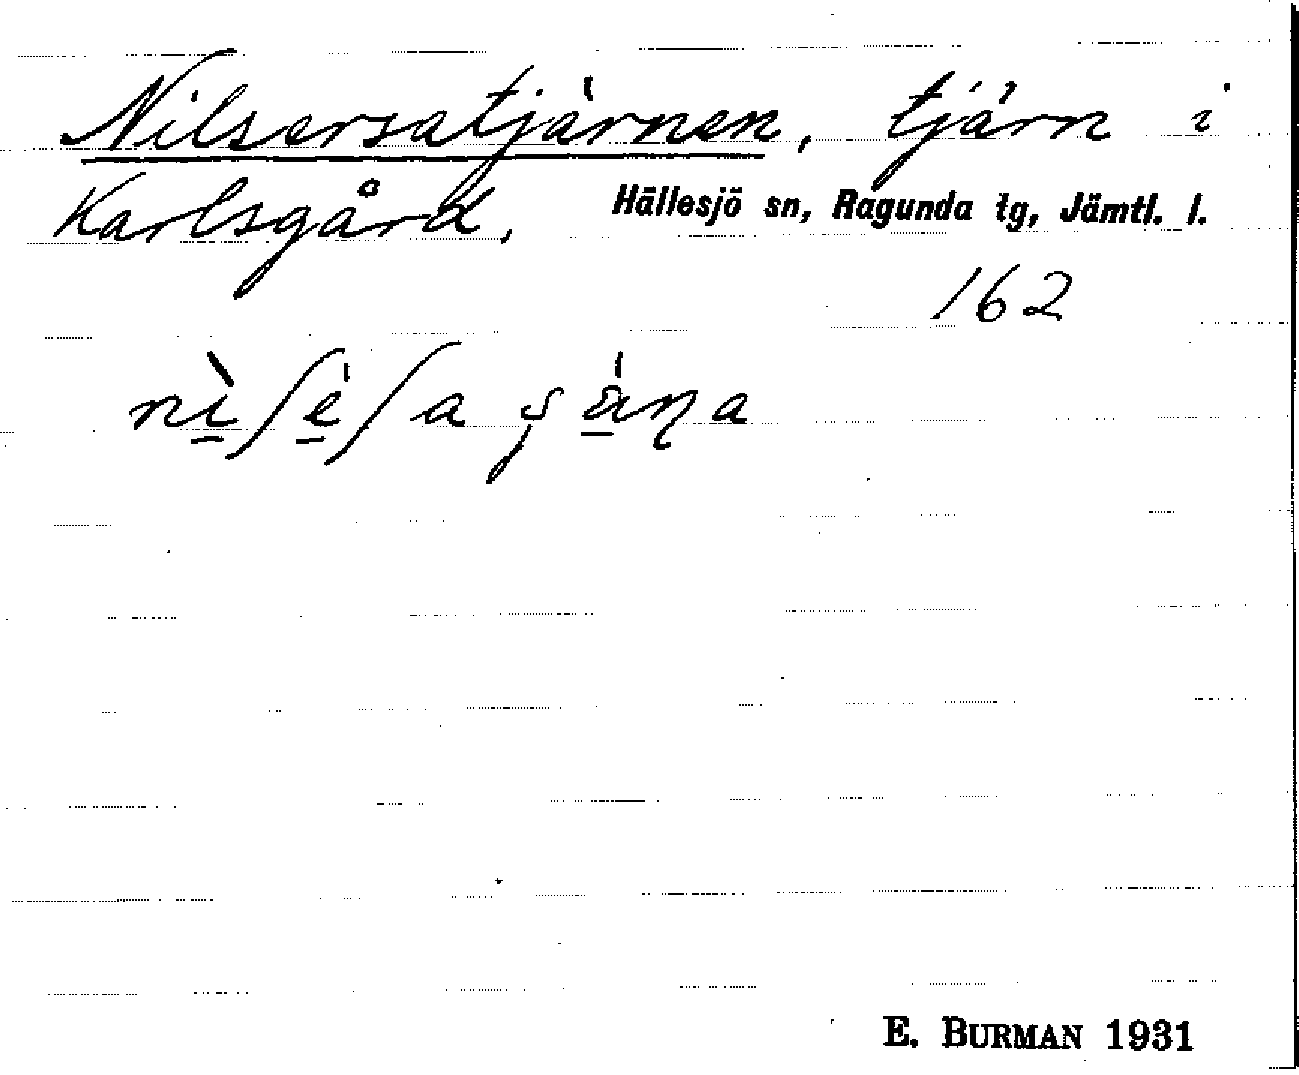 Nilsersatjärnen, tjärn i
Karlsgård, Hällesjö sn, Ragunda tg, Jämtl. l.
162
E. BURMAN 1931